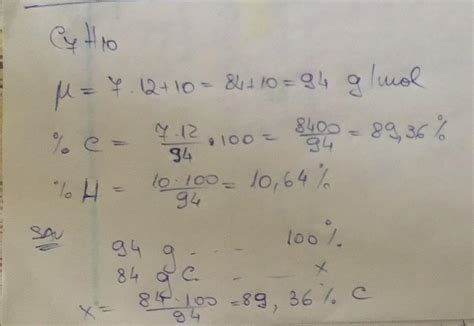 C7H10
μ = 7.12+10 = 84+10 = 94 g/mol
% C = 7.12/94 • 100 = 8400/94 = 89,36 %
% H = 10.100/94 = 10,64 %
sau
94 g ... 100 %
84 g C ... x
x = 84.100/94 = 89, 36 % C